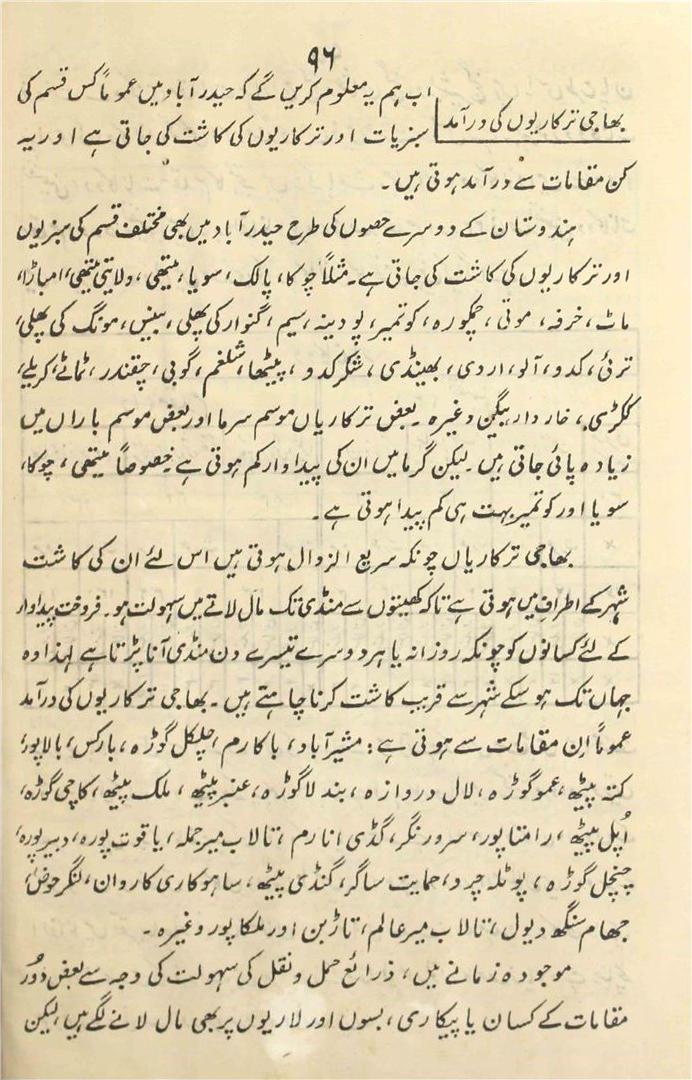 ۹۶
بھاجی ترکاریوں کی درآمد
اب ہم یہ معلوم کریں گے کہ حیدرآباد میں عموماً کس قسم کی
سبزیات اور ترکاریوں کی کاشت کی جاتی ہے اور یہ
کن مقامات سے درآمد ہوتی ہیں ۔
ہندوستان کے دوسرے حصوں کی طرح حیدرآباد میں بھی مختلف قسم کی سبزیوں
اور ترکاریوں کی کاشت کی جاتی ہے ۔ مثلاً چوکا، پالک، سویا، میتھی، ولایتی میتھی، امباڑا،
ماٹ، خرفہ، موتی، چمکورہ، کوتمیر، پودینہ، سیم، گنوار کی پھلی، بینس، مونگ کی پھلی،
ترئی، کدو، آلو، اردی، بھینڈی، شکر کدو، پیٹھا، شلغم، گوبی، چقندر، ٹماٹے، کریلے،
ککڑی، خاردار بیگن وغیرہ ۔ بعض ترکاریاں موسم سرما اور بعض موسم باراں میں
زیادہ پائی جاتی ہیں ۔ لیکن گرما میں ان کی پیداوار کم ہوتی ہے خصوصاً میتھی، چوکا،
سویا اور کوتمیر بہت ہی کم پیدا ہوتی ہے ۔
بھاجی ترکاریاں چونکہ سریع الزوال ہوتی ہیں اس لئے ان کی کاشت
شہر کے اطراف میں ہوتی ہے تاکہ کھیتوں سے منڈی تک مال لاتے میں سہولت ہو ۔ فروخت پیداوار
کے لئے کسانوں کو چونکہ روزانہ یا ہر دوسرے تیسرے دن منڈی آنا پڑتا ہے لہذا وہ
جہاں تک ہو سکے شہر سے قریب کاشت کرنا چاہتے ہیں ۔ بھاجی ترکاریوں کی درآمد
عموماً اِن مقامات سے ہوتی ہے: مشیرآباد، باکارم، چلپکل گوڑہ، بارکس، بالاپور،
کتہ پیٹھ، عمو گوڑہ، لال دروازہ، بندلا گوڑہ، عنبر پیٹھ، ملک پیٹھ، کاچی گوڑہ،
اُپل پیٹھ، رامنتاپور، سرورنگر، گڈی انارم، تالاب میر جملہ، یاقوت پورہ، دبیرپورہ،
چنچل گوڑہ، پوٹلہ چرد، حمایت ساگر، گنڈی پیٹھ، ساہوکاری کاروان، لنگر حوض،
جھام سنگھ دیول، تالاب میر عالم، تاڑبن اور ملکاپور وغیرہ ۔
موجودہ زمانے میں، ذرائع حمل و نقل کی سہولت کی وجہ سے بعض دُور
مقامات کے کسان یا پیکاری، بسوں اور لاریوں پر بھی مال لانے لگے ہیں، لیکن